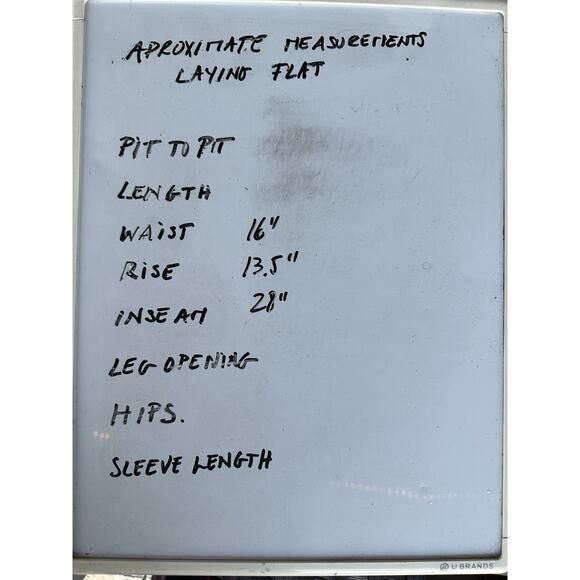 APROXIMATE MEASUREMENTS
LAYING FLAT
PIT TO PIT
LENGTH
WAIST 16"
RISE 13.5"
INSEAM 28"
LEG OPENING
HIPS.
SLEEVE LENGTH
U BRANDS